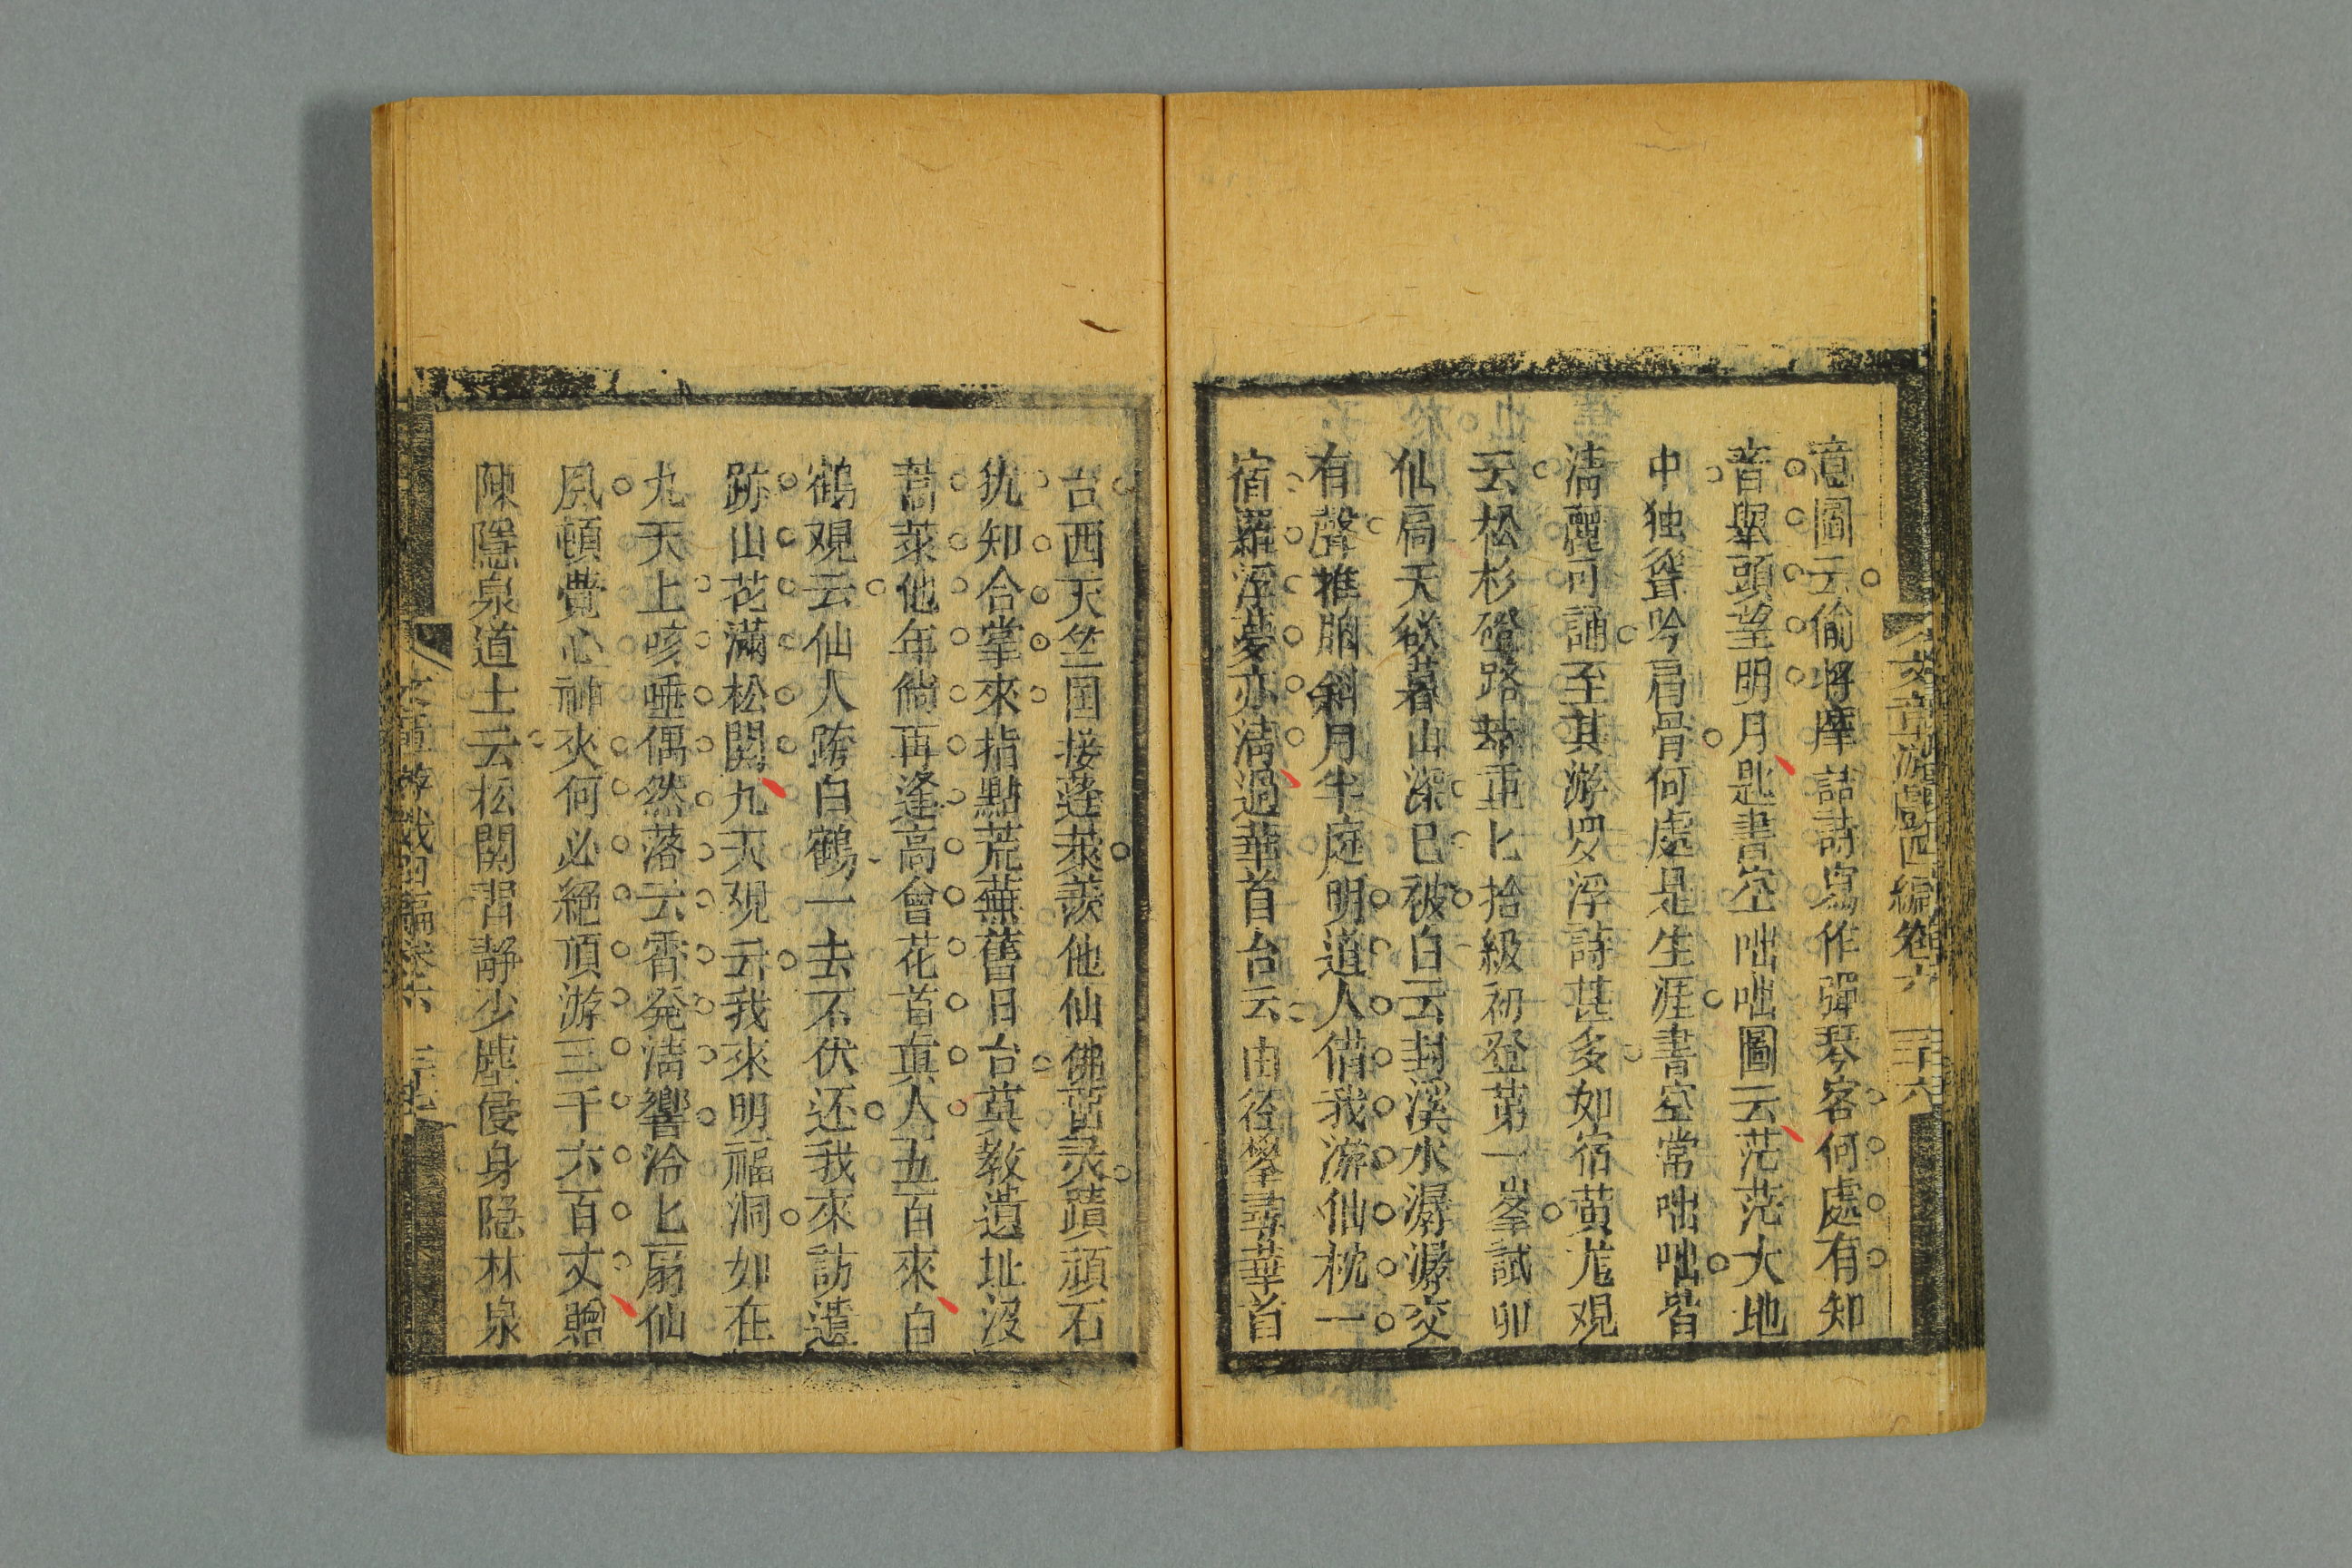 意圖云偷將摩詰詩寫作彈琴客何處有知
音舉頭望明月題書空咄咄圖云茫茫大地
中独聳吟肩骨何處是生涯書空常咄咄皆
清麗可誦至其游罗浮詩甚多如宿黄尨观
云松杉磴路蒼重匕拾級初登第一峯試卯
仙扃天欲暮山深已被白云封溪水潺潺交
有聲推胸斜月半庭明道人借我游仙枕一
宿羅浮夢亦清過華首台云由径攀尋華首
台西天竺国接蓬萊羨他仙佛留灵蹟頑石
犹知合掌來指點荒蕪舊日台莫教遺址沒
蒿萊他年倘再逢高會花首真人五百來白
鶴观云仙人跨白鶴一去不伏还我來訪遺
跡山花滿松関九天观云我來明福洞如在
九天上咳唾偶然落云霄発清響泠匕扇仙
風頓覺心神爽何必絕頂游三千六百丈贈
陳隱泉道士云松関習靜少塵侵身隐林泉
文章游戲四編卷六 三十六
文章游戲四編卷六